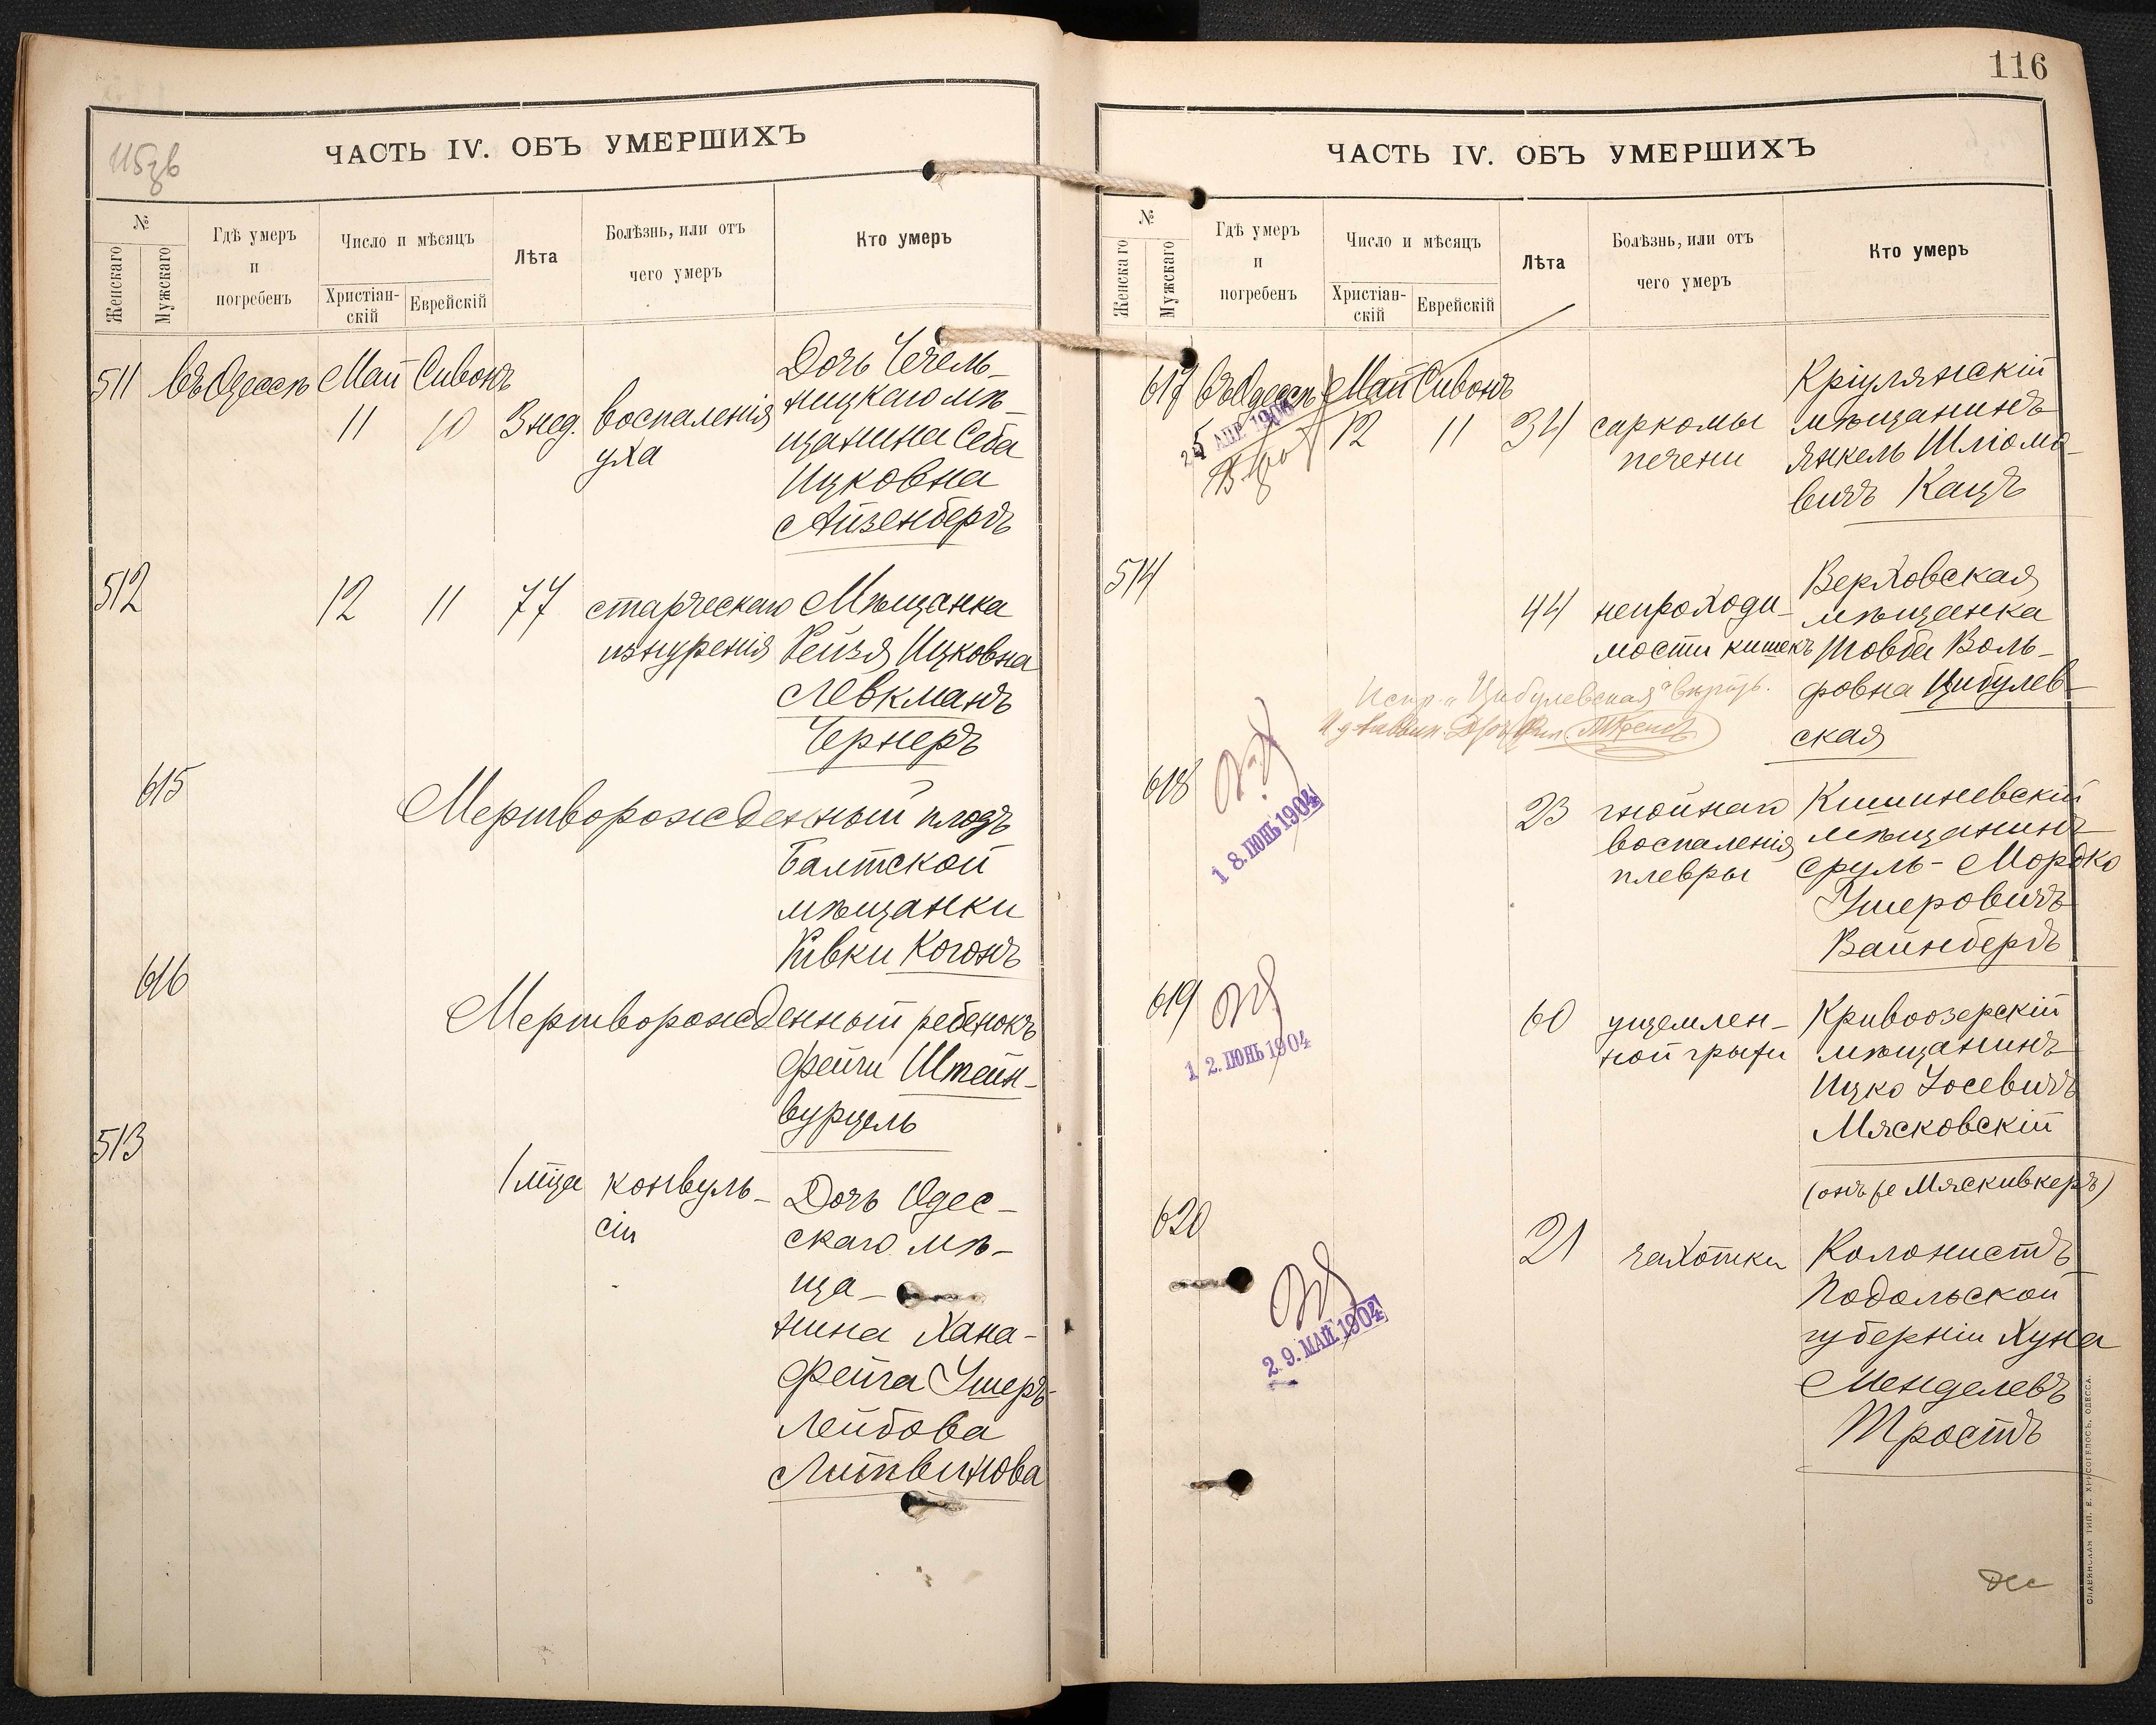 ЧАСТЬ IV. ОБЪ УМЕРШИХЪ
№
Женскаго
Мужскаго
Гдѣ умеръ
и
погребенъ
Число и мѣсяцъ
Христіан-
скій
Еврейскій
Лѣта
Болѣзнь, или отъ
чего умеръ
Кто умеръ
511 Въ Одессѣ Май Сивонъ
11 10 3 нед. воспаленія
уха
Дочь Чечель-
ницкаго мѣ-
щанина Себа
Ицковна
Айзенбергъ
512 12 11 77 старческаго
изнуренія
Мѣщанка
Рейзя Ицковна
Левкманъ
Чернеръ
615
Мертворожденный плодъ
Балтской
мѣщанки
Ривки Когонъ
616
Мертворожденный ребенокъ
Фейги Штейн-
вурцель
513
1 мѣца конвуль-
сіи
Дочь Одес-
скаго мѣ-
ща-
нина Хана-
Фейга Ушеръ-
Лейбова
Литвинова
116
ЧАСТЬ IV. ОБЪ УМЕРШИХЪ
№
Женскаго
Мужскаго
Гдѣ умеръ
и
погребенъ
Число и мѣсяцъ
Христіан-
скій
Еврейскій
Лѣта
Болѣзнь, или отъ
чего умеръ
Кто умеръ
617 Въ Одессѣ Май Сивонъ
12 11 34 саркомы
печени
Кріулянскій
мѣщанинъ
Янкель Шліомо-
вичъ Кацъ
514
44 непроходи-
мости кишекъ
Верховская
мѣщанка
Товба Воль-
фовна Цибулев-
ская
Испр. „Цибулевская" вѣрить.
618
18. ІЮНЬ 1904
23 гнойнаго
воспаленія
плевры
Кишиневскій
мѣщанинъ
Сруль-Мордко
Ушеровичъ
Вайнбергъ
619
12. ІЮНЬ 1904
60 ущемлен-
ной грыжи
Кривоозерскій
мѣщанинъ
Ицко Іосевичъ
Мясковскій
(онъ же Мяскивкеръ)
620
29. МАЙ 1904
21 чахотки
Колонистъ
Подольской
губерніи Хуна
Менделевъ
Тростъ
СЛАВЯНСКАЯ ТИП. Е. ХРИСОГЕЛОСЪ, ОДЕССА.